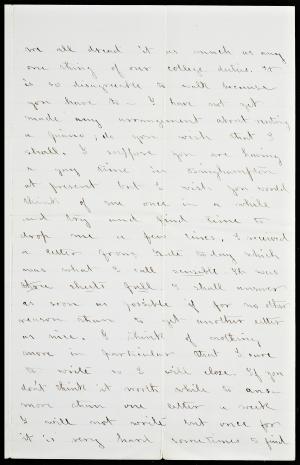 we all dread it as much as any
one thing of our college duties. It
is so disagreeable to walk because
you have to - I have not yet
made any arrangement about renting
a piano, do you wish that I
shall. I suppose you are having
a gay time in Binghampton
at present but I wish you would
think of me once in a while
and try and find time to
drop me a few lines. I received
a letter from to day which
was what I call sensible. It was
three sheets full. I shall answer
as soon as possible if for no other
reason than to get another letter
as nice. I think of nothing
more in particular that I care
to write so I will close. If you
don't think it worth while to ans-
more than one letter a week
I will not write but once for
it is very hard sometimes to find